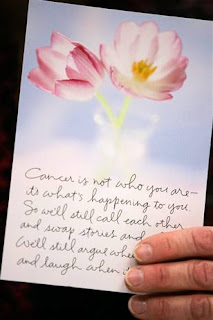 Cancer is not who you are—
it's what's happening to you.
So we'll still call each other
and swap stories and
We'll still argue whe
and laugh when i